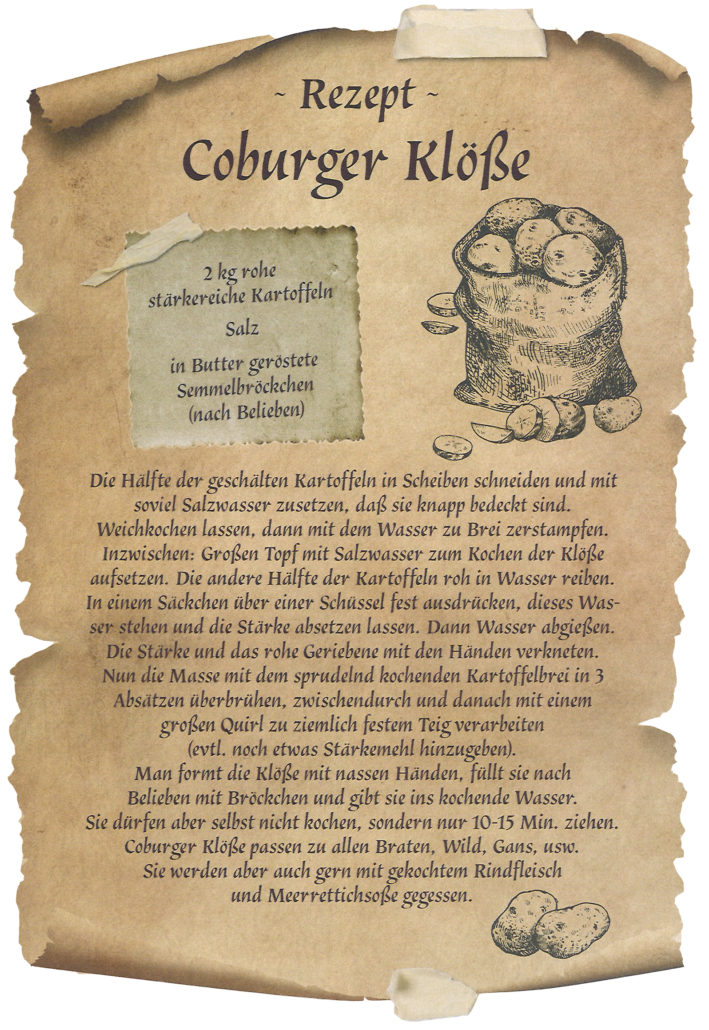 ~ Rezept ~
Coburger Klöße
2 kg rohe
stärkereiche Kartoffeln
Salz
in Butter geröstete
Semmelbröckchen
(nach Belieben)
Die Hälfte der geschälten Kartoffeln in Scheiben schneiden und mit
soviel Salzwasser zusetzen, daß sie knapp bedeckt sind.
Weichkochen lassen, dann mit dem Wasser zu Brei zerstampfen.
Inzwischen: Großen Topf mit Salzwasser zum Kochen der Klöße
aufsetzen. Die andere Hälfte der Kartoffeln roh in Wasser reiben.
In einem Säckchen über einer Schüssel fest ausdrücken, dieses Was-
ser stehen und die Stärke absetzen lassen. Dann Wasser abgießen.
Die Stärke und das rohe Geriebene mit den Händen verkneten.
Nun die Masse mit dem sprudelnd kochenden Kartoffelbrei in 3
Absätzen überbrühen, zwischendurch und danach mit einem
großen Quirl zu ziemlich festem Teig verarbeiten
(evtl. noch etwas Stärkemehl hinzugeben).
Man formt die Klöße mit nassen Händen, füllt sie nach
Belieben mit Bröckchen und gibt sie ins kochende Wasser.
Sie dürfen aber selbst nicht kochen, sondern nur 10-15 Min. ziehen.
Coburger Klöße passen zu allen Braten, Wild, Gans, usw.
Sie werden aber auch gern mit gekochtem Rindfleisch
und Meerrettichsoße gegessen.